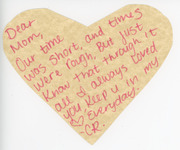 Dear
Mom,
Our time
was short, and times
were rough, But Just
Know that through it
all I always loved
you Keep U in my
♡ Everyday.
CR.